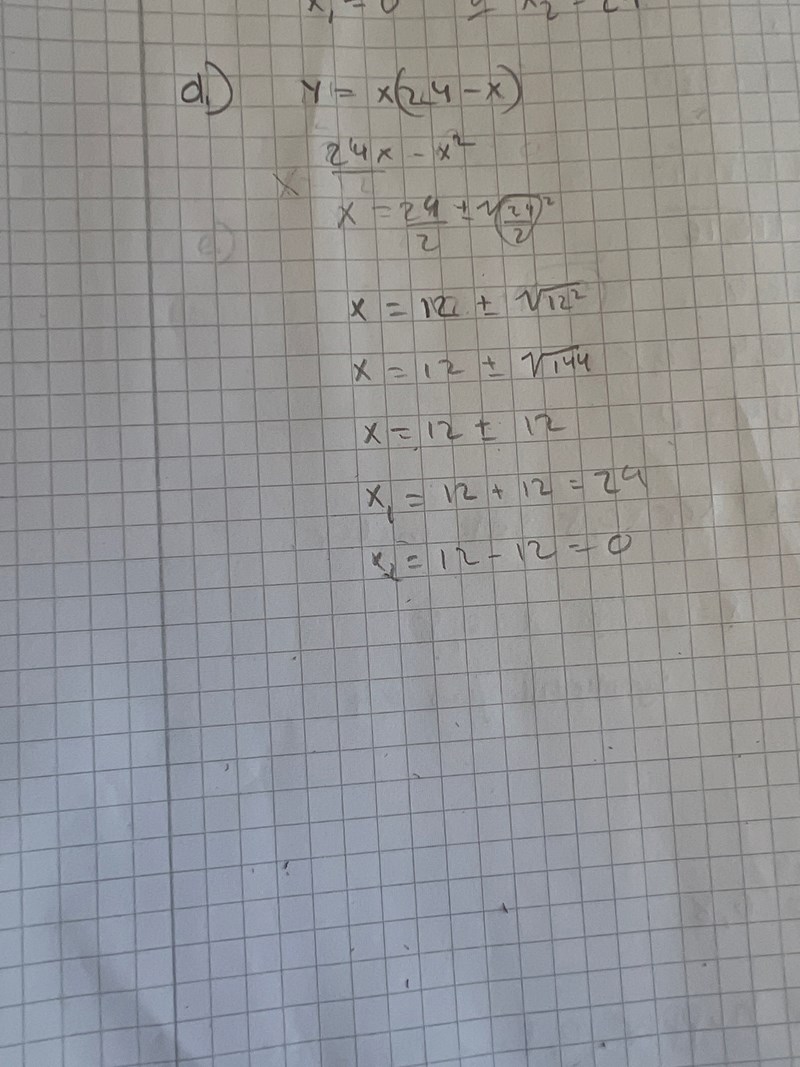 x₁ = 0
d.) y = x(24 - x)
24x - x²
x
x = 24/2 ± √(24/2)²
e.)
x = 12 ± √12²
x = 12 ± √144
x = 12 ± 12
x₁ = 12 + 12 = 24
x₂ = 12 - 12 = 0